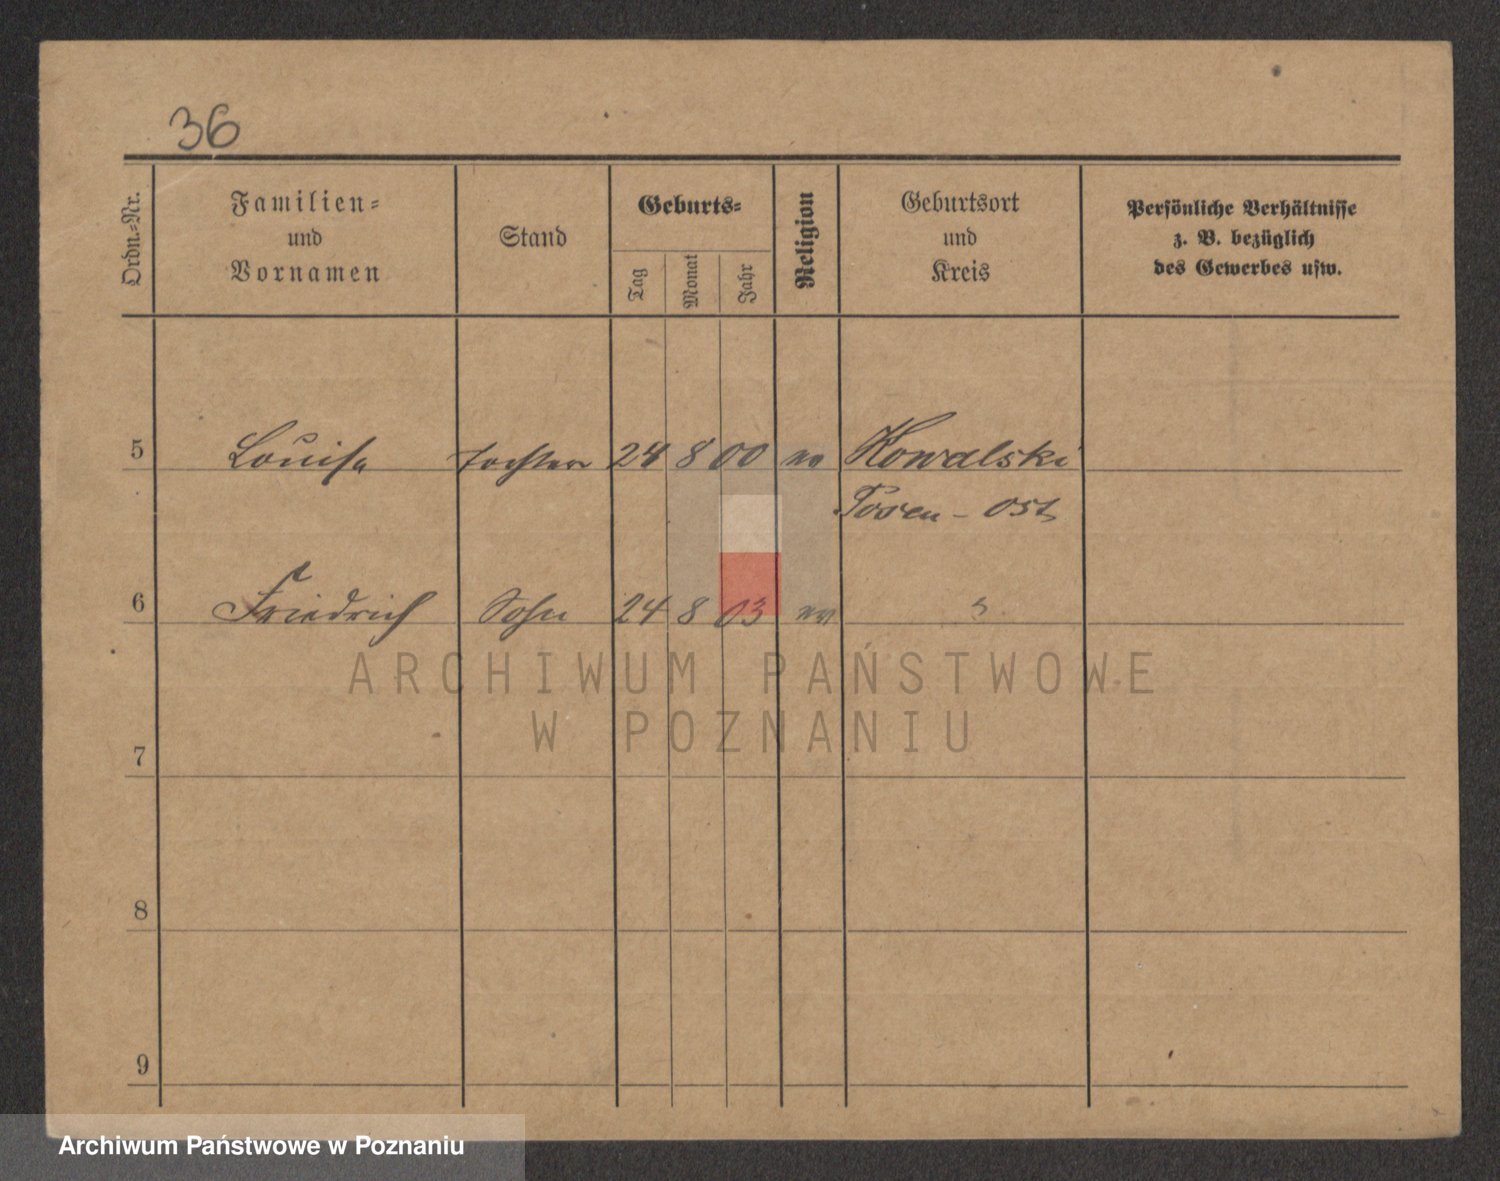 36
Ordn.-Nr.
Familien-
und
Vornamen
Stand
Geburts-
Tag
Monat
Jahr
Religion
Geburtsort
und
Kreis
Persönliche Verhältnisse
z. B. bezüglich
des Gewerbes usw.
5 Louise Tochter 24 8 00 ev Kowalski
Posen - Ost
6 Friedrich Sohn 24 8 03 ev "
ARCHIWUM PAŃSTWOWE
W POZNANIU
7
8
9
Archiwum Państwowe w Poznaniu